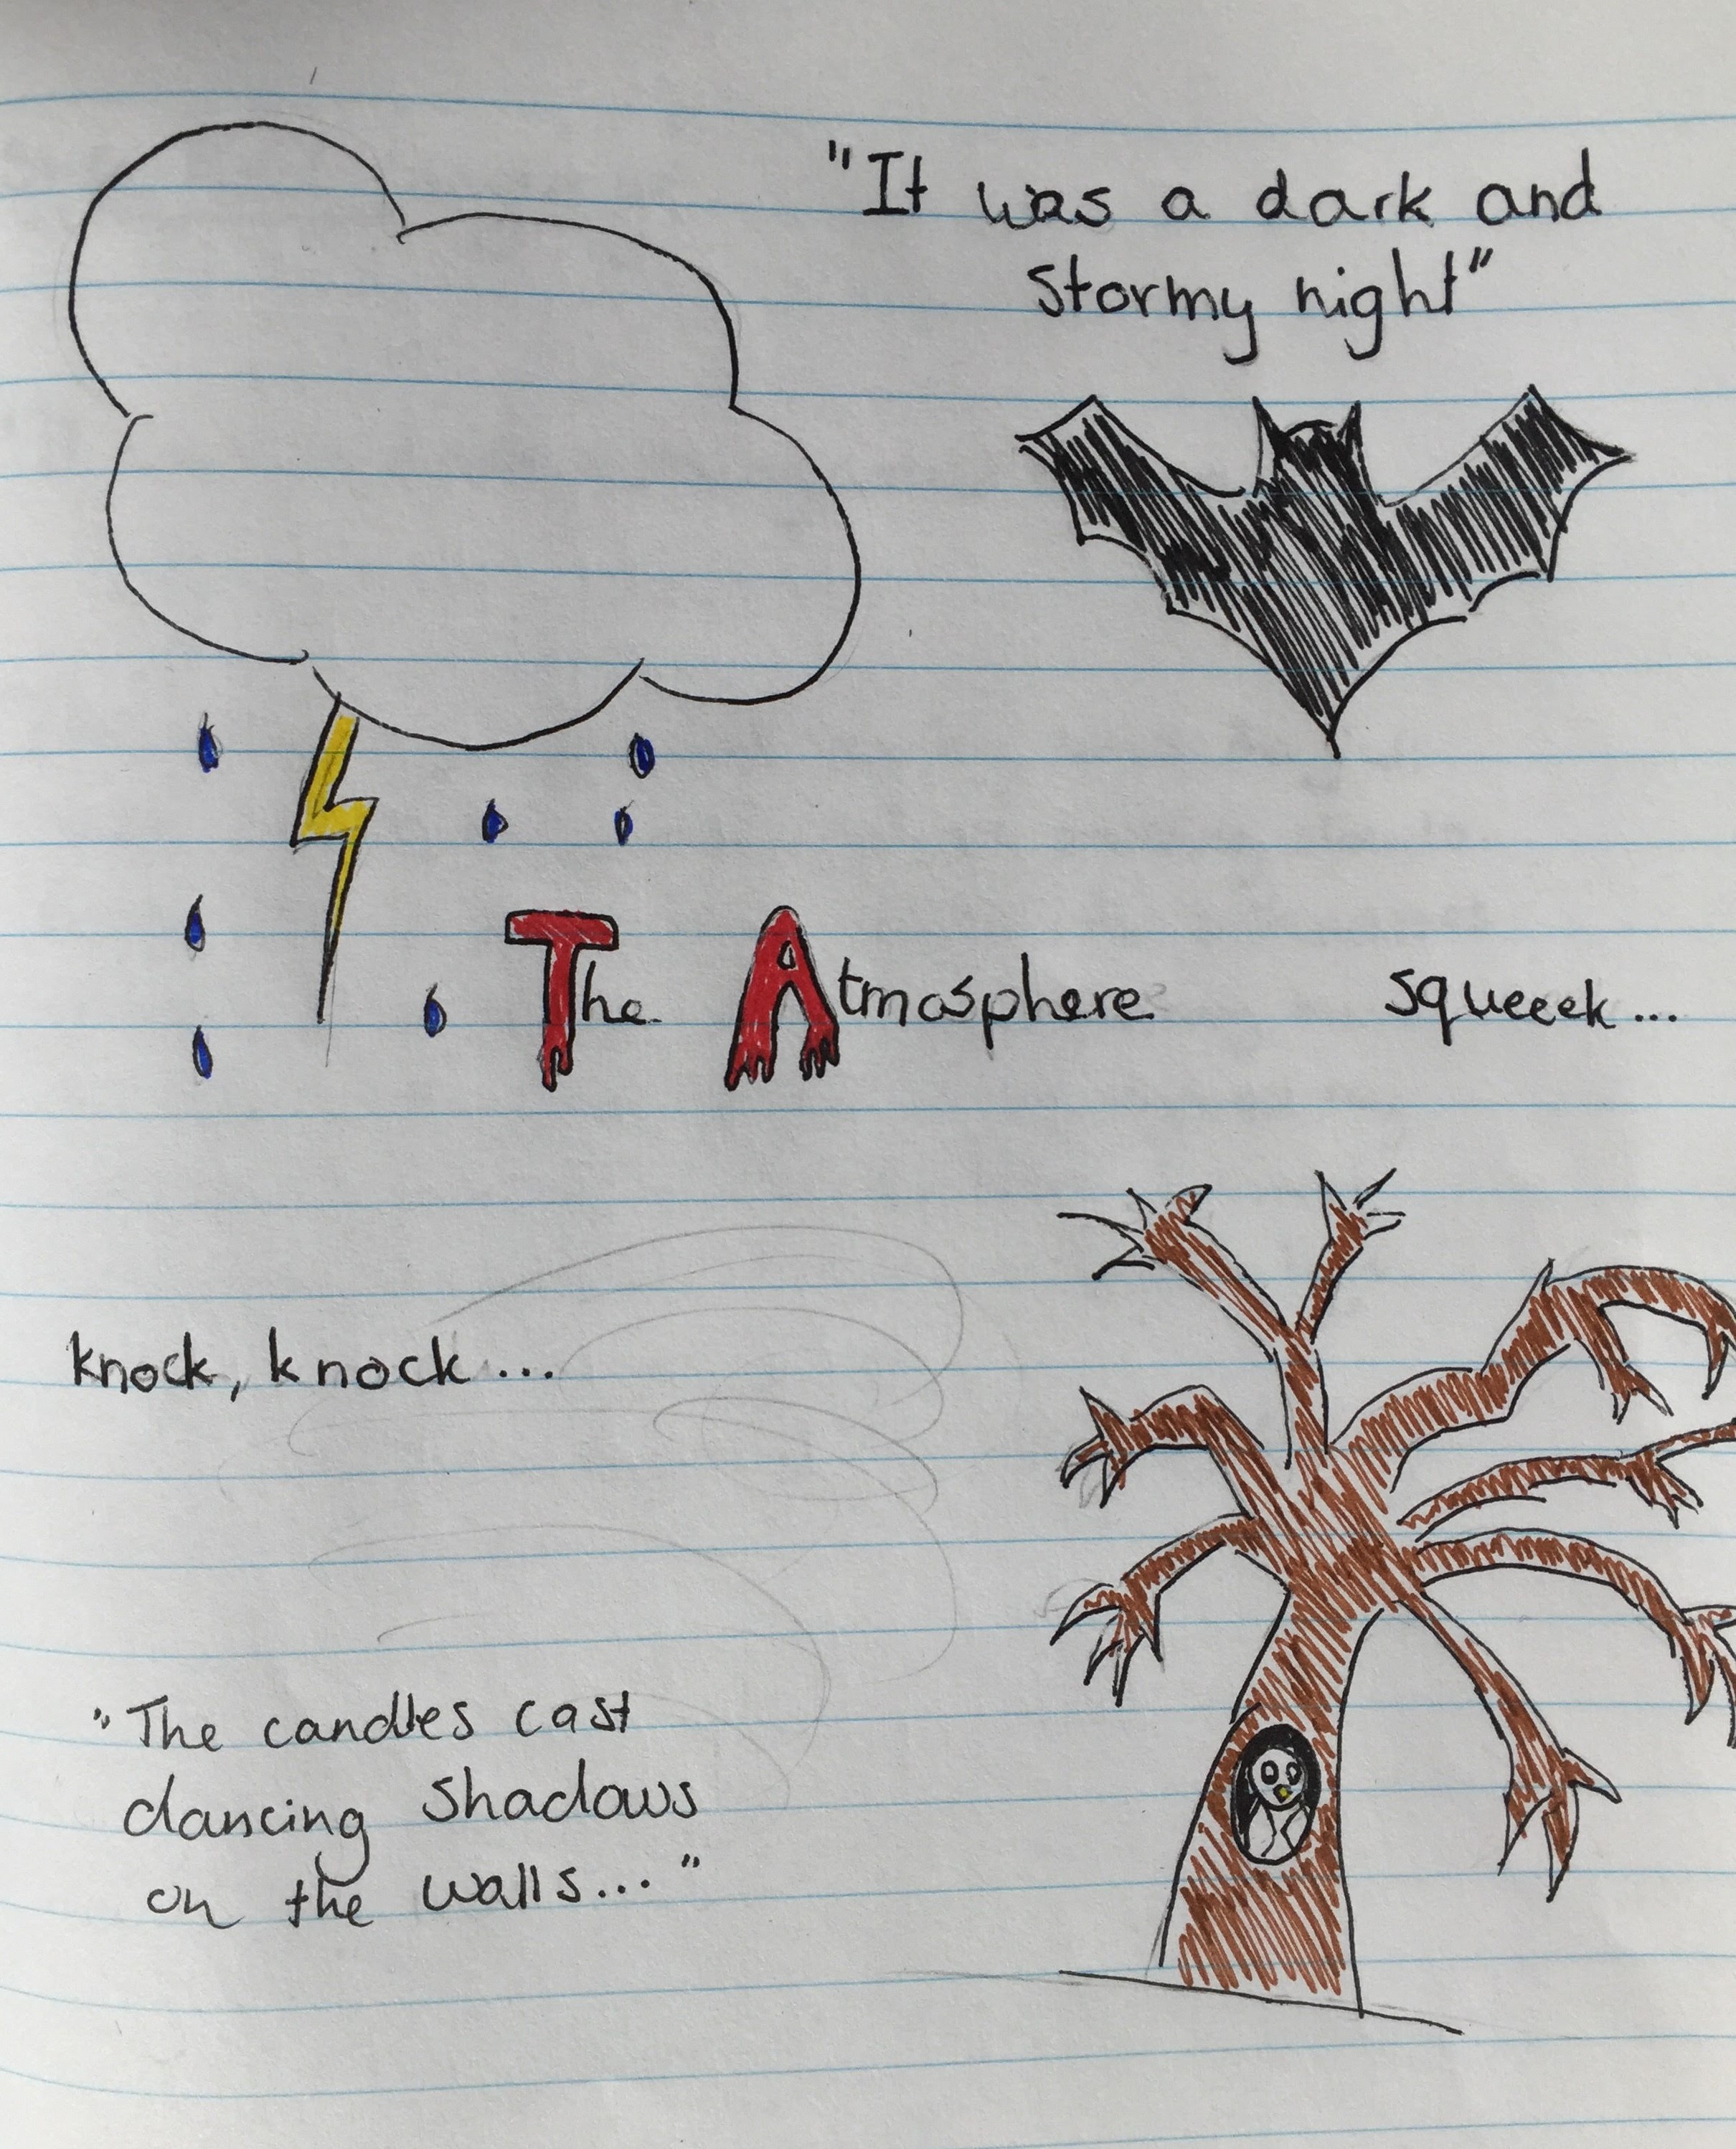 "It was a dark and
stormy night"
The Atmosphere
squeeek...
knock, knock...
"The candles cast
dancing shadows
on the walls..."